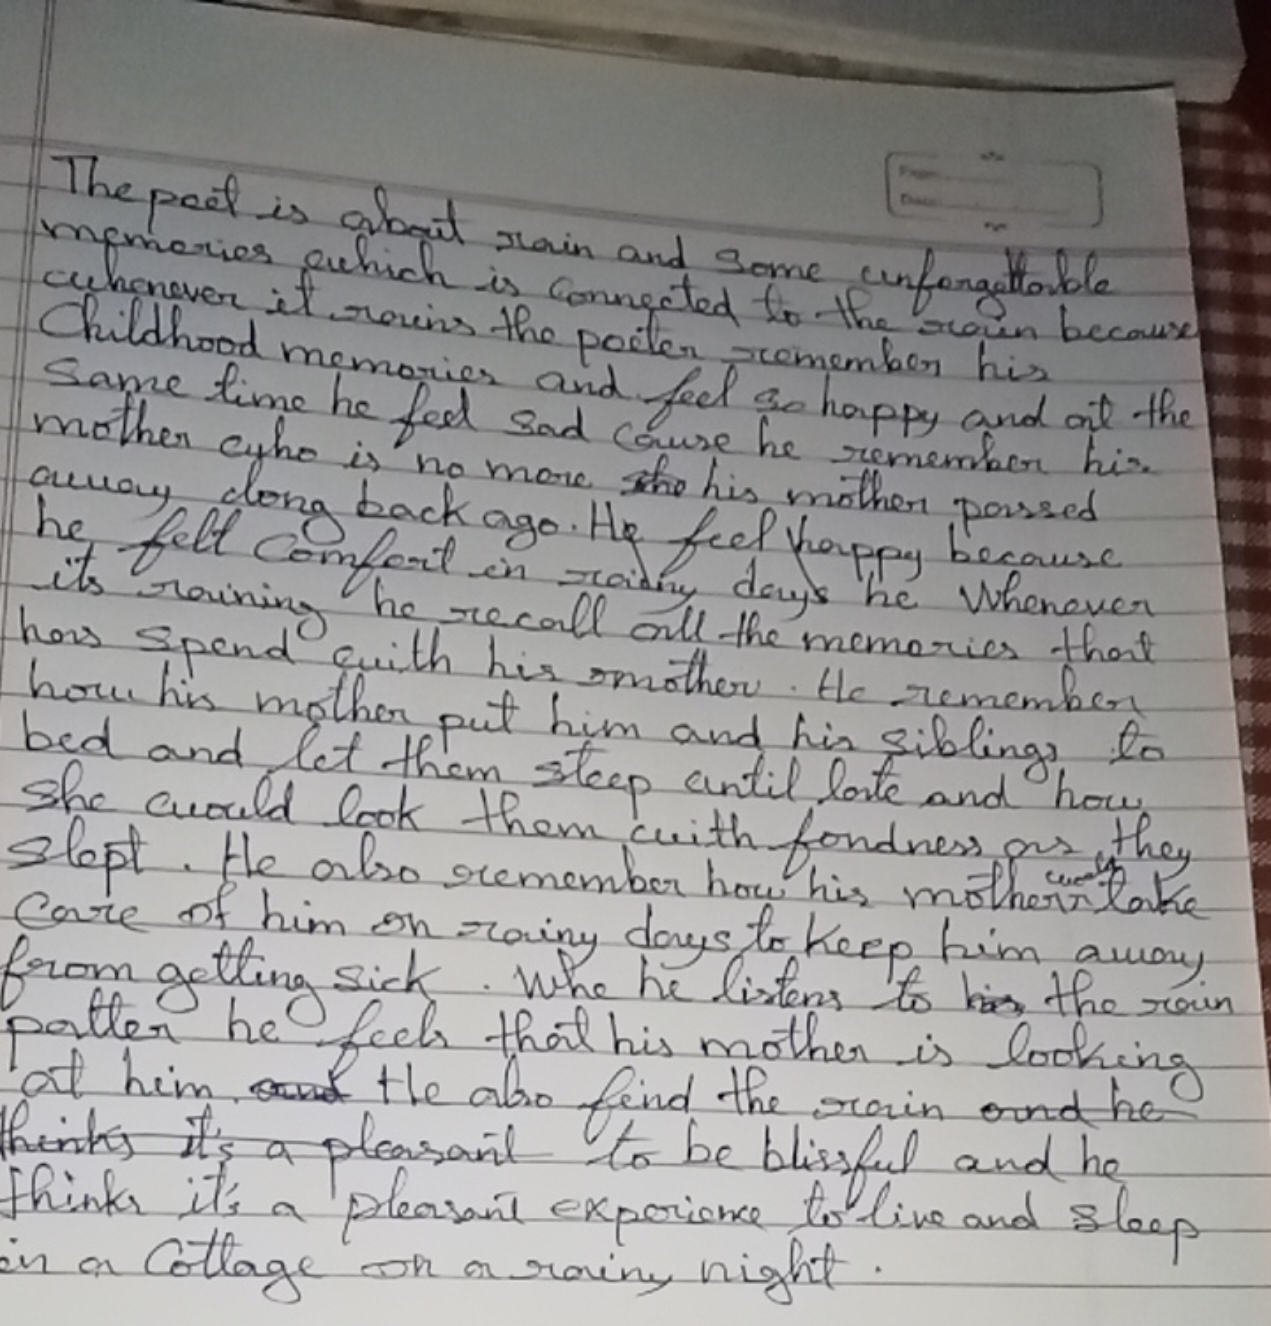 The poet is about rain and some unforgettable
memories which is connected to the rain because
whenever it rains the poeter remember his
Childhood memories and feel so happy and at the
Same time he feel sad cause he remember his
mother who is no more she his mother passed
away long back ago. He feel happy because
he felt comfort in rainy days he Whenever
its raining he recall all the memories that
has spend with his mother. He remember
how his mother put him and his siblings to
bed and let them sleep until late and how
she would look them with fondness as they
slept. He also remember how his mother take
Care of him on rainy days to keep him away
from getting sick. Whe he listens to the rain
patter he feels that his mother is looking
at him and He also find the rain and he
thinks it's a pleasant to be blissful and he
thinks it's a pleasant experience to live and sleep
in a Cottage on a rainy night.